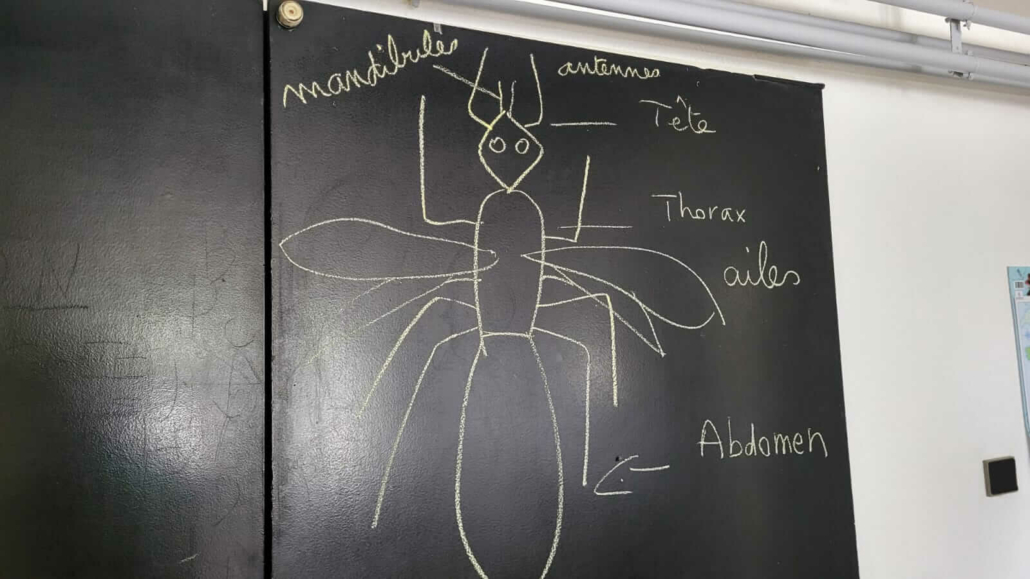 mandibules
antennes
Tête
Thorax
ailes
Abdomen